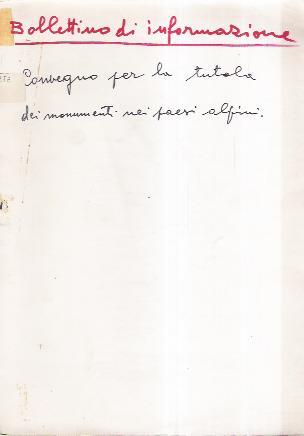 Bollettino di informazione
Convegno per la tutela
dei monumenti nei paesi alpini.